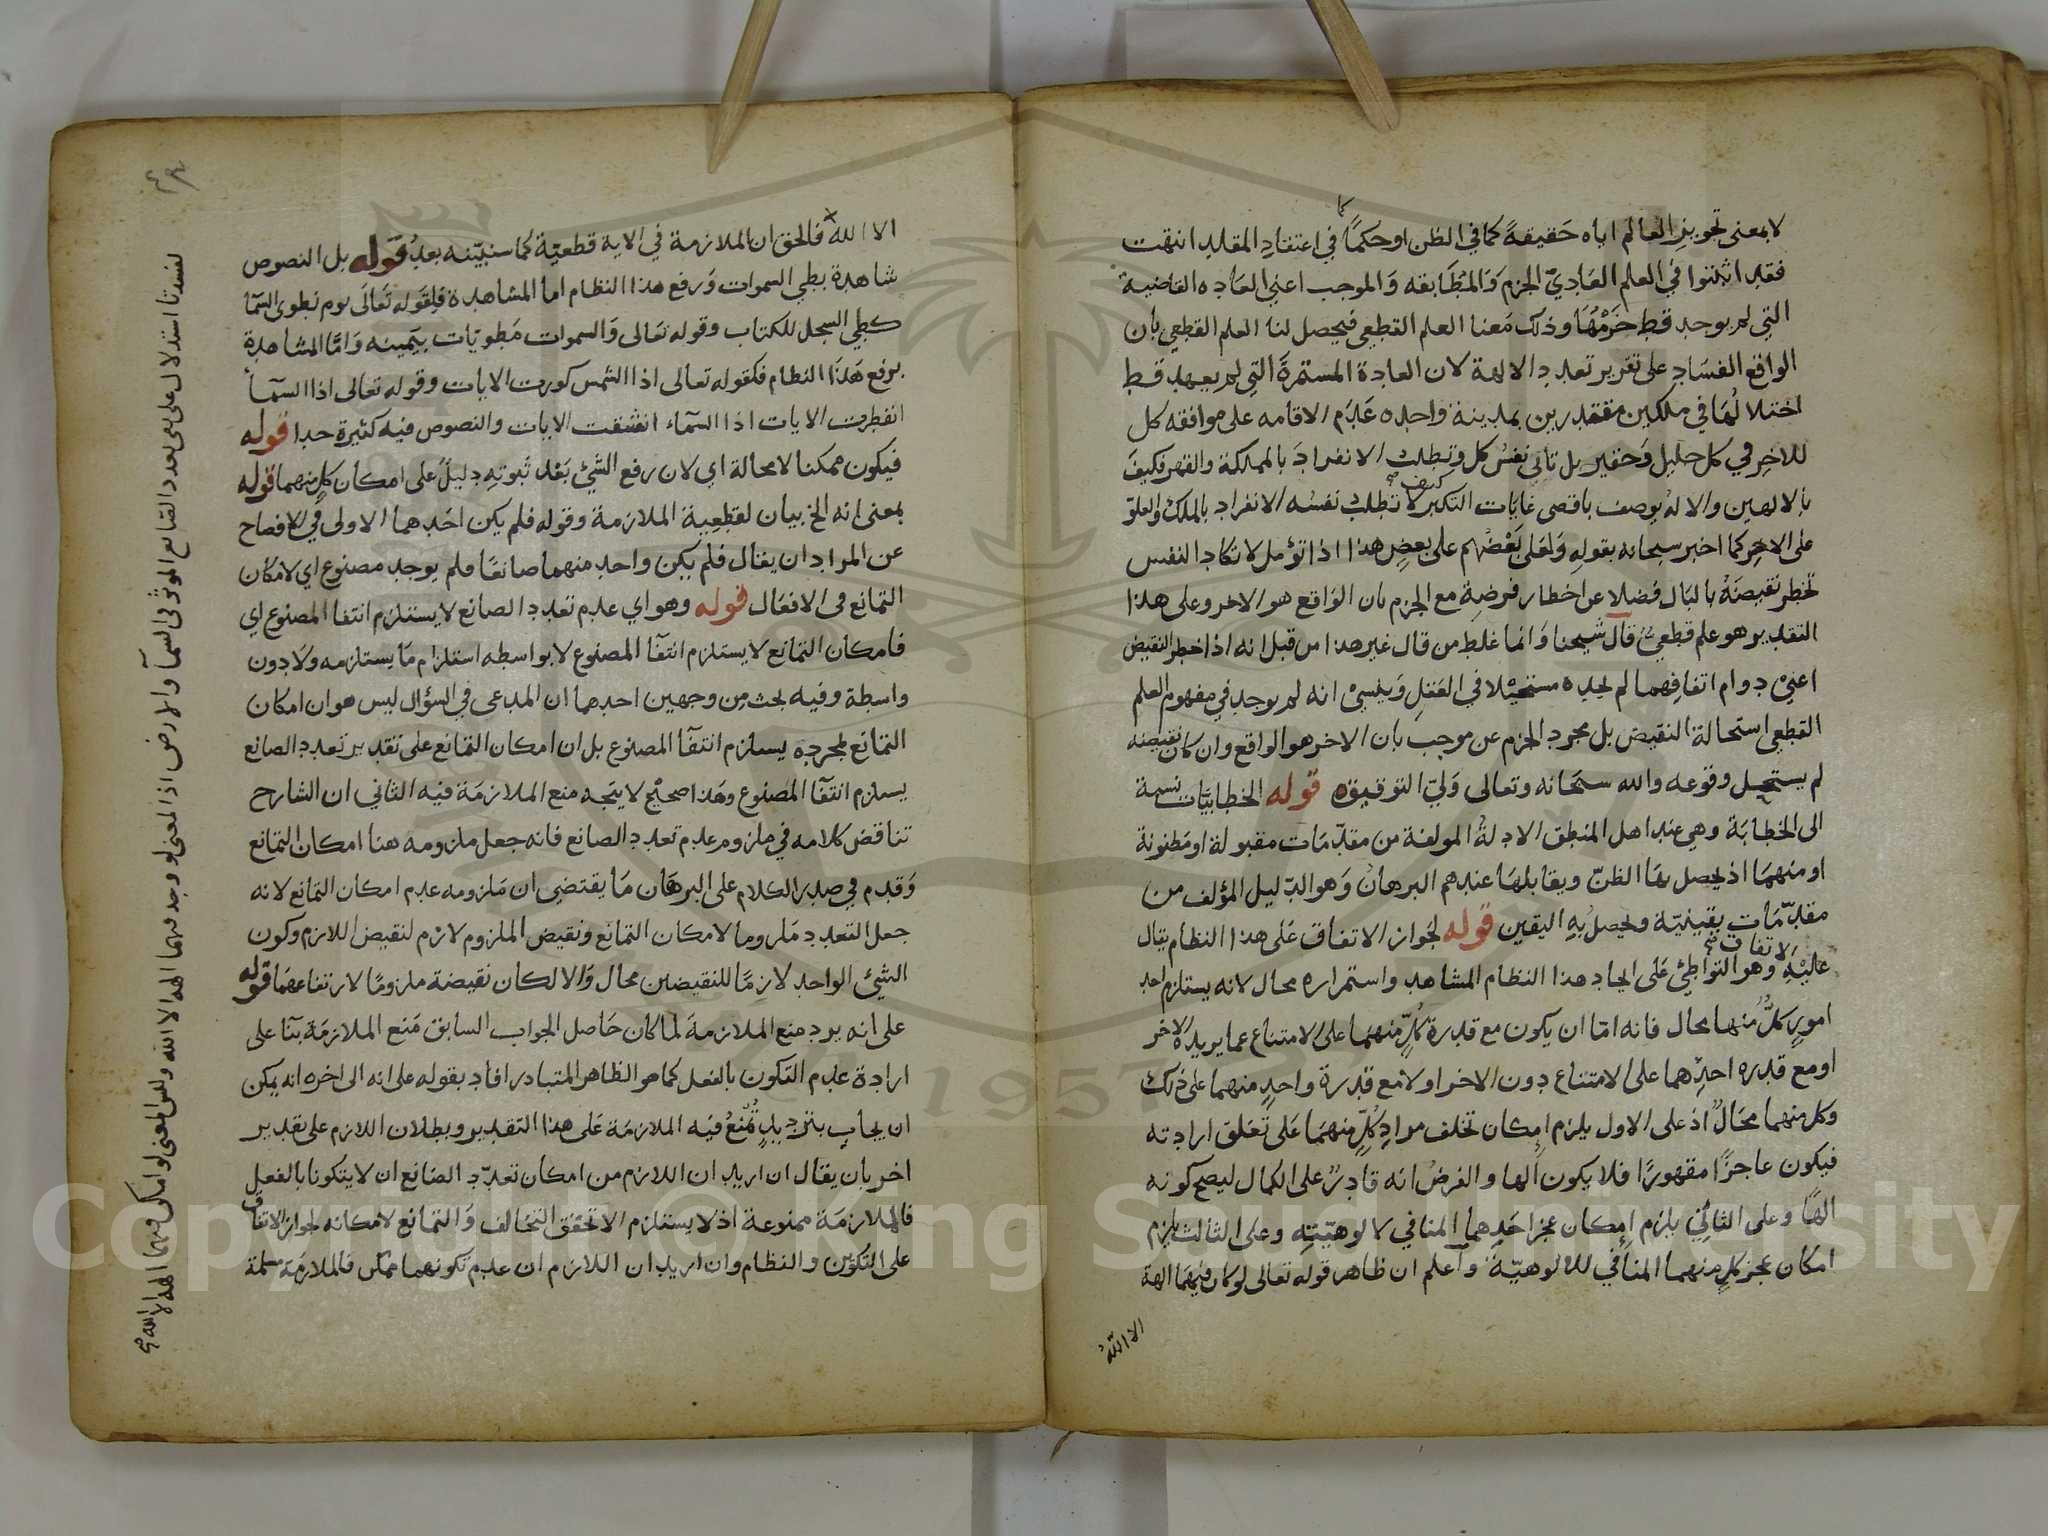 لا بمعنى تجويز العالم اياه حقيقةً كما في الظن او حكمًا كما في اعتقاد المقلد انتهت
فقد اثبتوا في العلم العاديّ الجزم والمطابقه والموجب اعني العاده القاضية
التي لم يوجد قط خرمها وذلك معنا العلم القطعي فيحصل لنا العلم القطعي بان
الواقع الفساد على تقرير تعدد الالهة لان العادة المستمرة التي لم يعهد قط
اختلالها في ملكين مقتدرين بمدينة واحده عدم الاقامه على موافقه كل
للاخر في كل جليل وحقير بل تابى نفس كل وتطلب الانفراد بالمملكة والقهر فكيف
بالالهين والاله يوصف باقصى غايات التكبر كيف لا تطلب نفسه الانفراد بالملك والعلو
على الاخر كما اخبر سبحانه بقوله ولعلى بعضهم على بعض هذا اذا تؤمل لا تكاد النفس
تخطر نقيضه بالبال فضلا عن اخطار فرضه مع الجزم بان الواقع هو الاخر وعلى هذا
التقدير هو علم قطعي قال شيخنا وانما غلط من قال غير هذا من قبل انه اذا خطر النقيض
اعني دوام اتفاقهما لم يجده مستحيلا في العقل وينسى انه لم يوجد في مفهوم العلم
القطعي استحالة النقيض بل مجرد الجزم عن موجب بان الاخر هو الواقع وان كان نقيضه
لم يستحل وقوعه والله سبحانه وتعالى وليّ التوفيق قوله الخطابيات نسبة
الى الخطابة وهي عند اهل المنطق الادلة المولفة من مقدّمات مقبولة او مظنونة
او منهما اذ يحصل بها الظنّ ويقابلها عندهم البرهان وهو الدليل المؤلف من
مقدّمات يقينيّة ويحصل به اليقين قوله لجواز الاتفاق على هذا النظام يقال
عليه الاتفاق وهو التواطئ على ايجاد هذا النظام المشاهد واستمراره محال لانه يستلزم احد
امور كلٌّ منها محال فانه امّا ان يكون مع قدرة كلٍّ منهما على الامتناع عما يريده الاخر
او مع قدره احدهما على الامتناع دون الاخر او لا مع قدرة واحد منهما على ذلك
وكل منهما محال اذ على الاول يلزم امكان تخلف مراد كلٍّ منهما على تعلق ارادته
فيكون عاجزًا مقهورًا فلا يكون الها والفرض انه قادر على الكمال ليصح كونه
الهًا وعلى الثاني يلزم إمكان عجز احدهما المنافي لالوهيّته وعلى الثالث يلزم
امكان عجز كل منهما المنافي للالوهيّة واعلم ان ظاهر قوله تعالى لو كان فيهما الهة
الا اللهُ
الا الله فالحق ان الملازمة في الاية قطعيّة كما سنبيّنه بعد قوله بل النصوص
شاهدة بطي السموات ورفع هذا النظام اما المشاهدة فلقوله تعالى يوم نطوى السمآ
كطي السجل للكتاب وقوله تعالى والسموات مطويّات بيمينه وامّا المشاهدة
برفع هذا النظام فكقوله تعالى اذا الشمس كورت الايات وقوله تعالى اذا السمآ
انفطرت الايات اذا السمآء انشقت الايات والنصوص فيه كثيرة جدا قوله
فيكون ممكنا لا محالة اي لان رفع الشيئ بعد ثبوته دليل على امكان كل منهما قوله
بمعنى انه الخ بيان لقطعية الملازمة وقوله فلم يكن احدهما الاولى في الافصاح
عن المراد ان يقال فلم يكن واحد منهما صانعًا فلم يوجد مصنوع اي لامكان
التمانع في الافعال قوله وهو اي عدم تعدد الصانع لا يستلزم انتفا المصنوع اي
فامكان التمانع لا يستلزم انتفآ المصنوع لا بواسطه استلزام ما يستلزمه ولا دون
واسطة وفيه بحث من وجهين احدهما ان المدعى في السؤال ليس هو ان امكان
التمانع بمجرده يستلزم انتفآ المصنوع بل ان امكان التمانع على تقدير تعدد الصانع
يستلزم انتفآ المصنوع وهذا صحيح لا يتجه منع الملازمة فيه الثاني ان الشارح
تناقض كلامه في ملزوم عدم تعدد الصانع فانه جعل ملزومه هنا امكان التمانع
وقدم في صدر الكلام على البرهان ما يقتضي ان ملزومه عدم امكان التمانع لانه
جعل التعدد ملزوما لامكان التمانع ونقيض الملزوم لازم لنقيض اللازم وكون
الشيئ الواحد لازمًا للنقيضين محال والا لكان نقيضه ملزومًا لارتفاعهما قوله
على انه يرد منع الملازمة لما كان حاصل الجواب السابق منع الملازمة بنآ على
ارادة عدم التكون بالفعل كما هو الظاهر المتبادر افاد بقوله على انه الى اخره انه يمكن
ان يجاب بترديدٍ تُمنع فيه الملازمة على هذا التقدير وبطلان اللازم على تقدير
اخر بان يقال ان اريد ان اللازم من امكان تعدّد الصانع ان لا يتكونا بالفعل
فالملازمة ممنوعة اذ لا يستلزم الا تحقق التخالف والتمانع لامكانه لجواز الاتفاق
على التكوّن والنظام وان اريد ان اللازم ان عدم تكونهما ممكن فالملازمة مسلمة
لفسدتا استدلال على نفى تعدد الصانع الموثر فى السمآ والارض اذا المعنى لو وجد فيهما الهه الا الله وليس المعنى لو امكن فيهما الهه الا الله صح